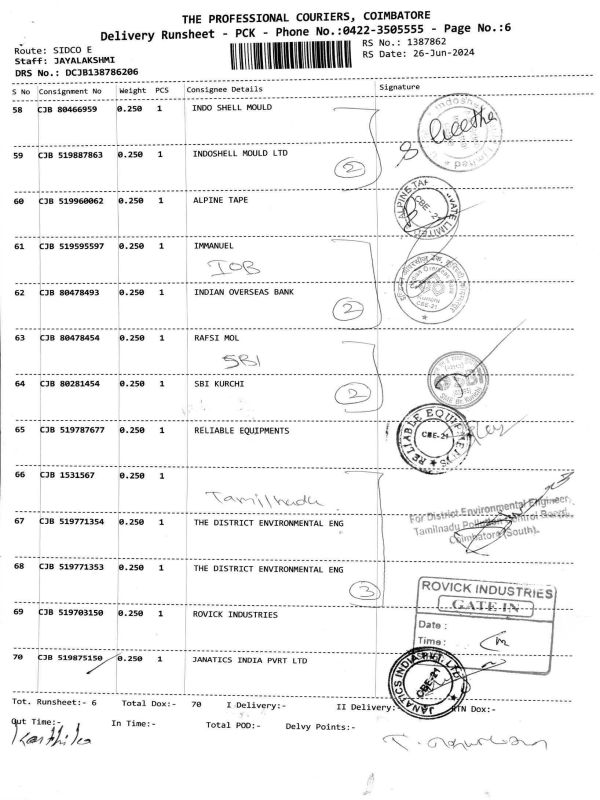 THE PROFESSIONAL COURIERS, COIMBATORE
Delivery Runsheet - PCK - Phone No.:0422-3505555 - Page No.:6
Route: SIDCO E
RS No.: 1387862
Staff: JAYALAKSHMI
RS Date: 26-Jun-2024
DRS No.: DCJB138786206
S No Consignment No Weight PCS Consignee Details Signature
58 CJB 80466959 0.250 1 INDO SHELL MOULD
Geetha
59 CJB 519887863 0.250 1 INDOSHELL MOULD LTD
2
60 CJB 519960062 0.250 1 ALPINE TAPE
CBE-21
61 CJB 519595597 0.250 1 IMMANUEL
IOB
62 CJB 80478493 0.250 1 INDIAN OVERSEAS BANK
2
Indian Overseas Bank
Kurichi
CBE-21
63 CJB 80478454 0.250 1 RAFSI MOL
SBI
64 CJB 80281454 0.250 1 SBI KURCHI
2
SBI
65 CJB 519787677 0.250 1 RELIABLE EQUIPMENTS
RELIABLE EQUIPMENTS
CBE-21
66 CJB 1531567 0.250 1
Tamilnadu
For District Environmental Engineer,
Tamilnadu Pollution Control Board,
Coimbatore (South).
67 CJB 519771354 0.250 1 THE DISTRICT ENVIRONMENTAL ENG
68 CJB 519771353 0.250 1 THE DISTRICT ENVIRONMENTAL ENG
3
ROVICK INDUSTRIES
GATE IN
Date :
Time :
69 CJB 519703150 0.250 1 ROVICK INDUSTRIES
70 CJB 519875150 0.250 1 JANATICS INDIA PVRT LTD
JANATICS INDIA PVT. LTD
CBE-21
Tot. Runsheet:- 6 Total Dox:- 70 I Delivery:- II Delivery:- RTN Dox:-
Out Time:- In Time:- Total POD:- Delvy Points:-
Karthika